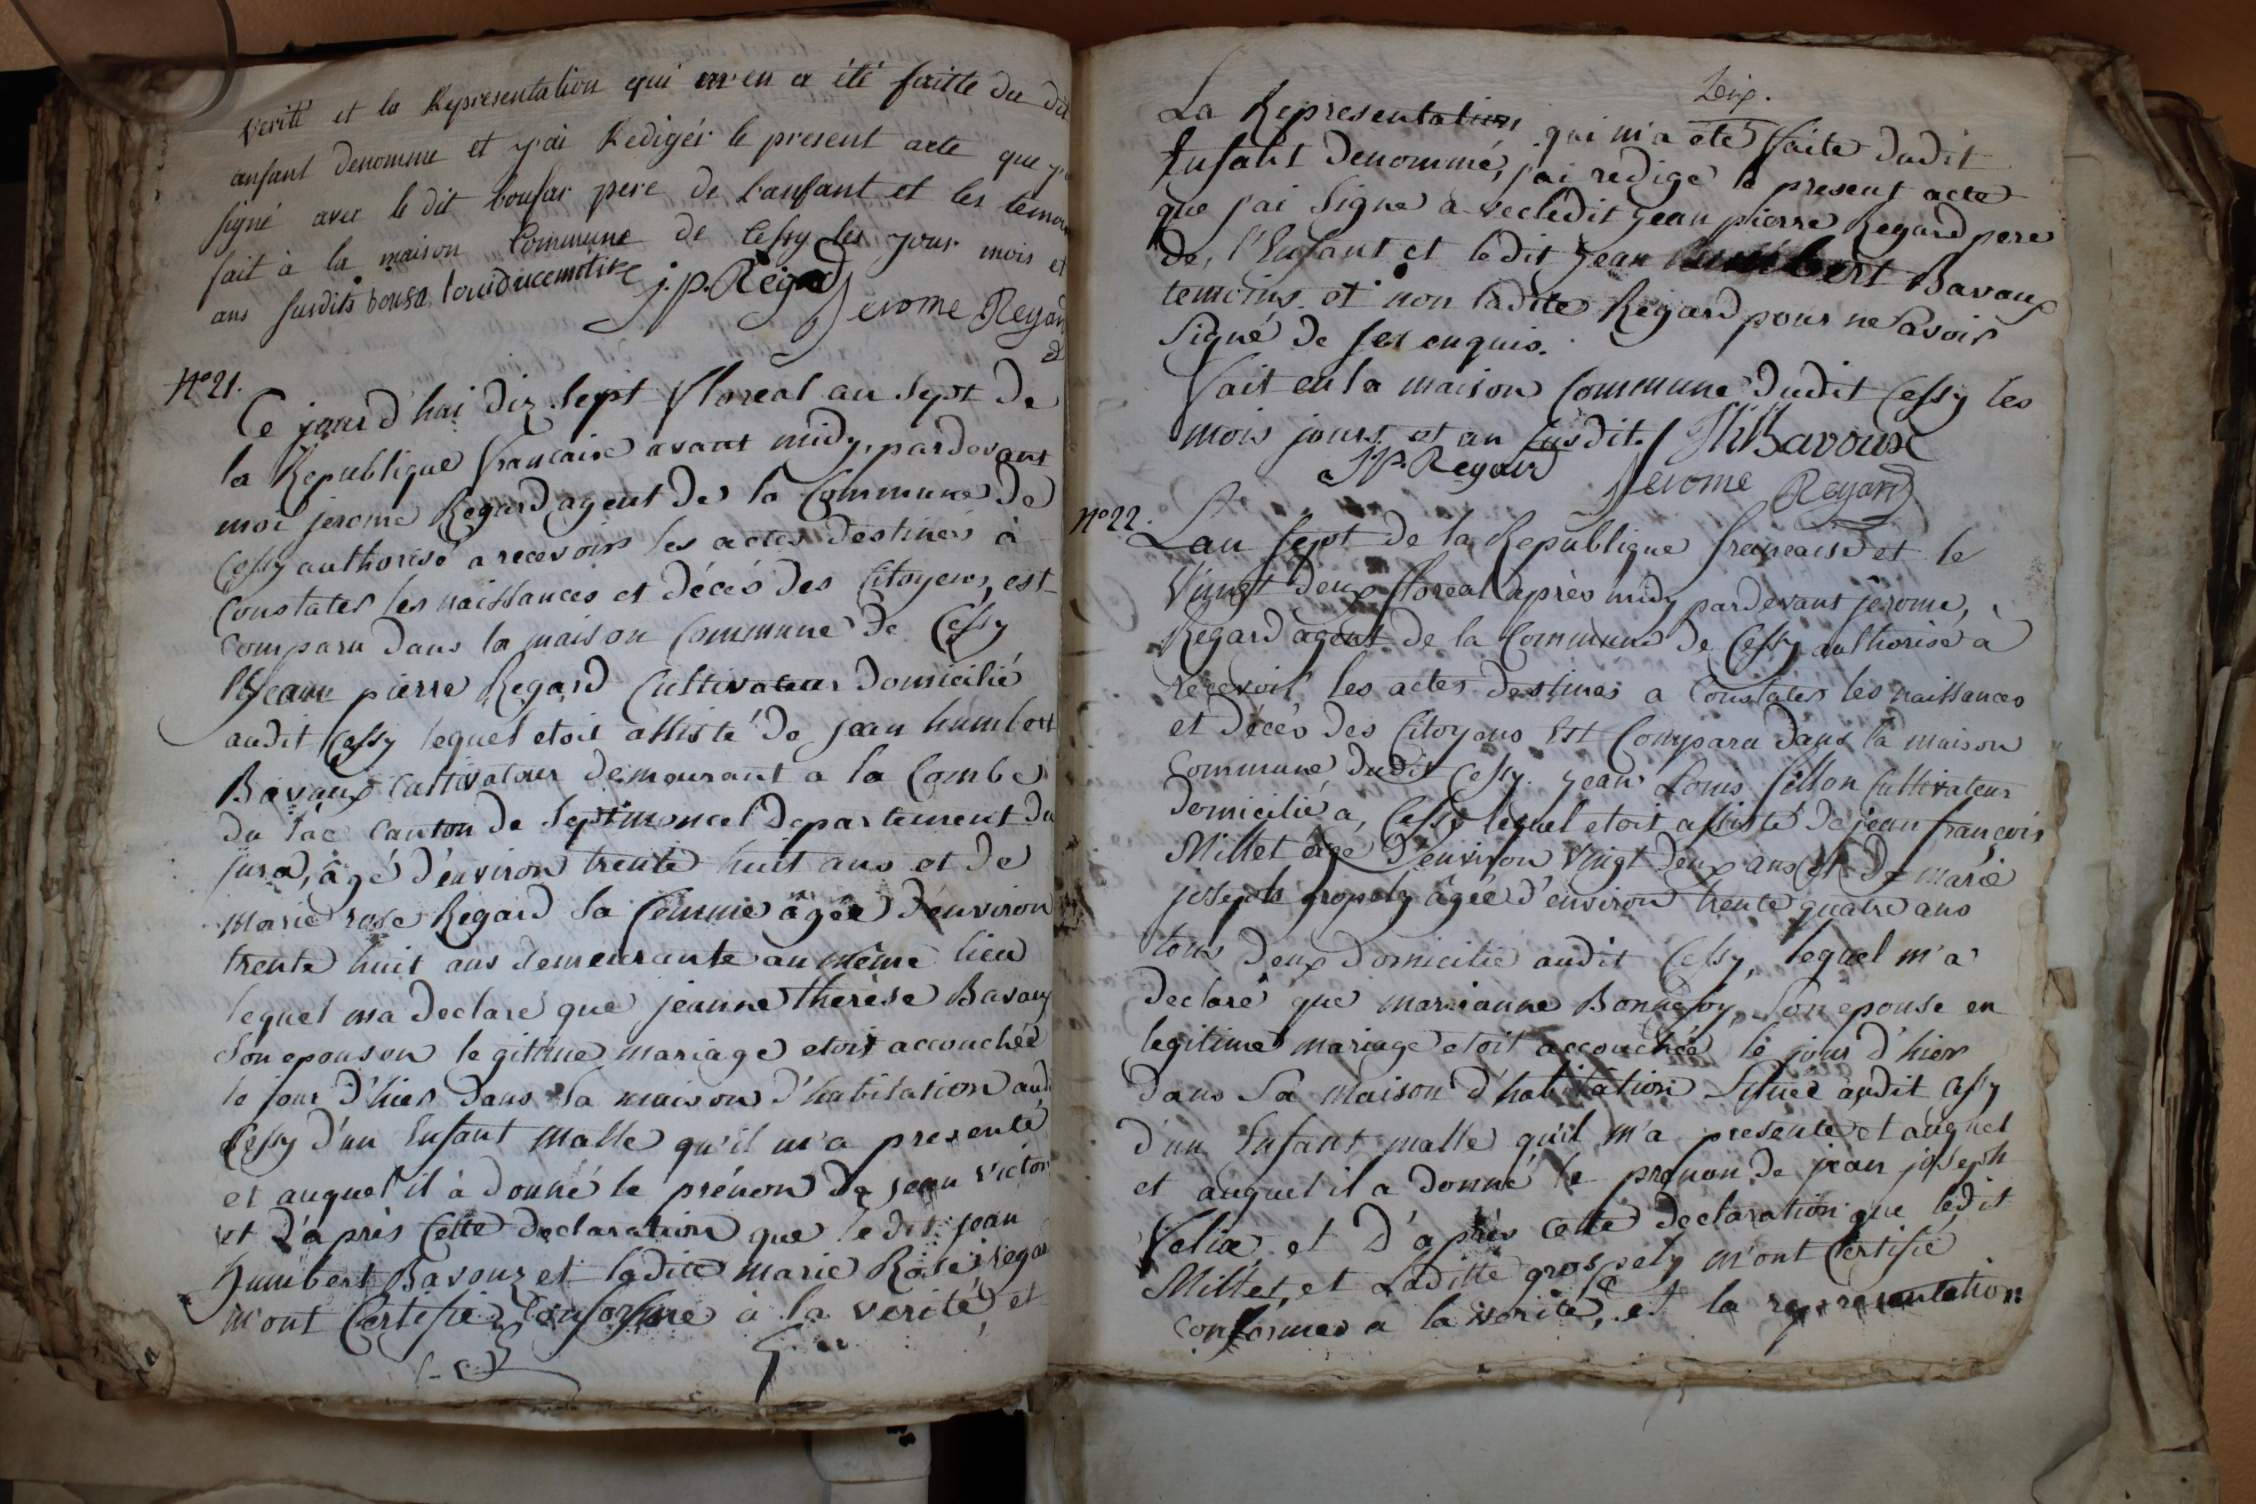 verité et la Representation qui m'en a été faitte du dit
anfant denomme et j'ai Redigér le present acte que j'ai
signé avec le dit bousar pere de l'anfant et les temoin
fait à la maison Commune de Cessy les jour mois et
ans susdits
j.p. Regard
Jerome Regard
N° 21.
Ce jourd'hui dix sept floreal an sept de
la Republique francaise avant midy, pardevant
moi jerome Regard agent de la Commune de
Cessy authorisé a recevoir les actes destinés à
Constater les naissances et décés des Citoyens, est
comparu dans la maison Commune de Cessy
jean pierre Regard Cultivateur domicilié
audit Cessy lequel etoit assisté de jean humbert
Bavaux Cultivateur demeurant a la Combe
du Lac Canton de Septmoncel Departement du
jura, âgé d'environ trente huit ans et de
marie rose Regard sa femme âgée d'environ
trente huit ans demeurante au même lieu
lequel ma declaré que jeanne therèse Bavaux
son epouse en legitime mariage etoit accouchée
le jour d'hier dans sa maison d'habitation audit
Cessy d'un Enfant malle qu'il m'a presenté
et auquel il à donné le prénom de jean victor
et d'après Cette declaration que le dit jean
humbert Bavoux et ladite marie Rose Regard
m'ont Certifié Conforme à la verité, et
Dix.
La Representation qui m'a été faite dudit
Enfant denommé, j'ai redigé le present acte
que j'ai Signé avec ledit jean pierre Regard pere
de l'Enfant et ledit jean humbert Bavaux
temoins et non ladite Regard pour ne Savoir
Signé de fes enquis.
Fait en la maison Commune dudit Cessy les
mois jours et an susdit. JhBavoux
J.P. Regard
Jerome Regard
N° 22.
Lan Sept de la Republique francaise et le
Vingt deux floreal après midy pardevant jerome,
Regard agent de la Commune de Cessy authorisé à
recevoir les actes destinés a Constater les naissances
et décés des Citoyens Est Comparu dans la maison
Commune dudit Cessy. jean Louis fillon Cultivateur
domicilié a, Cessy lequel etoit assisté de jean françois
Millet âgé d'environ vingt deux ans et de marie
joseph gropely âgée d'environ trente quatre ans
tous deux domicilié audit Cessy, lequel m'a
declaré que marianne Bonnefoy, son epouse en
legitime mariage etoit accouchée le jour d'hier
dans sa maison d'habitation Situee audit Cessy
d'un Enfant malle qu'il m'a presenté et auquel
et auquel il a donné le prenon de jean joseph
Felix, et d'après cette declaration que ledit
Millet, et Laditte grospely m'ont Certifié
conforme a la verité, et la representation